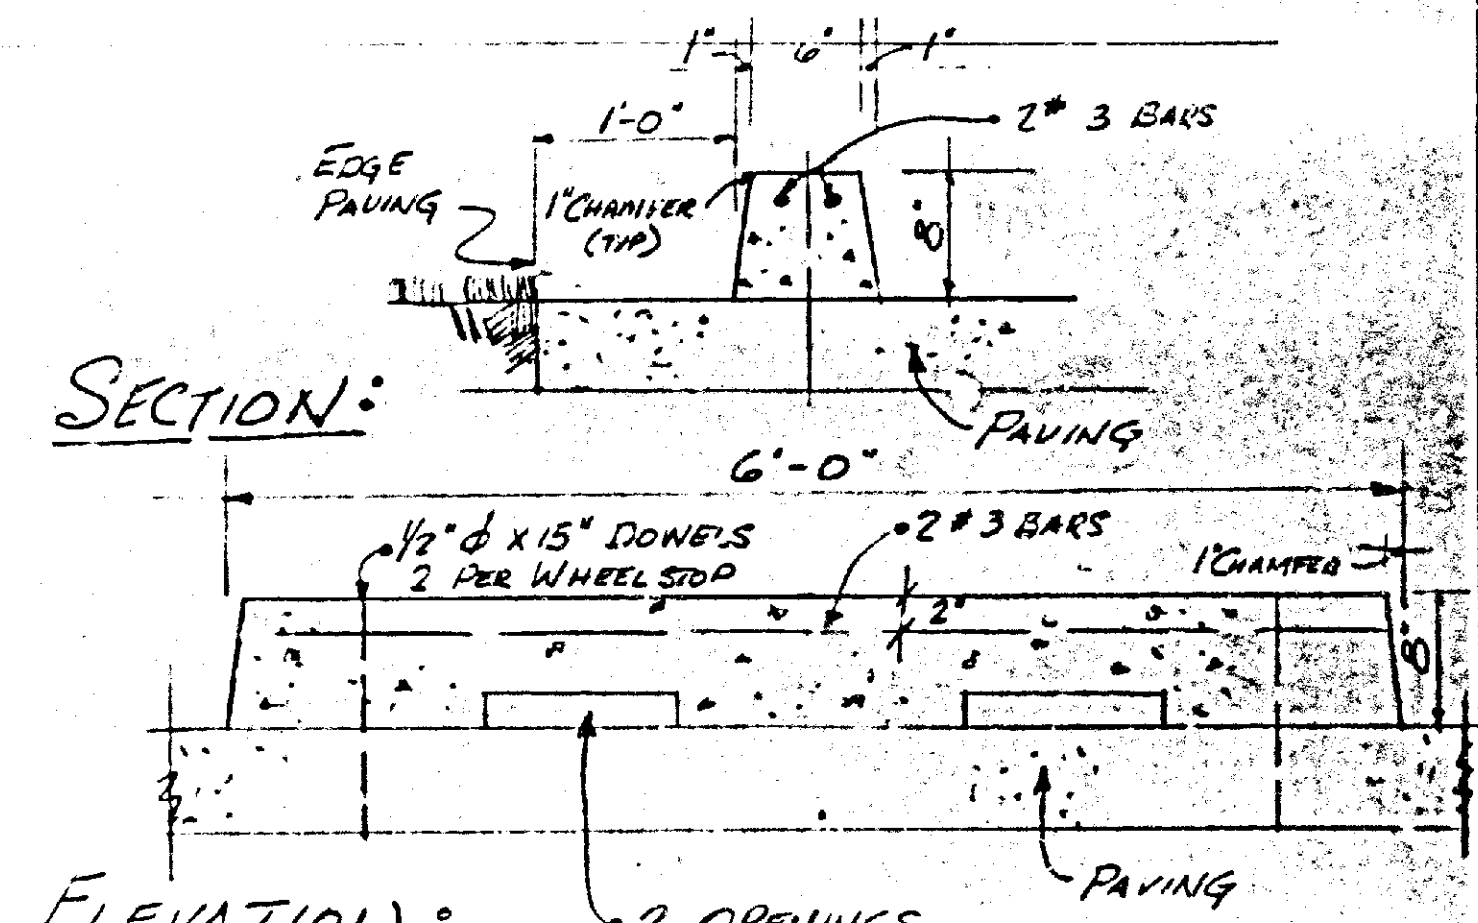 1" 6" 1"
1'-0"
2 # 3 BARS
EDGE
PAVING
1" CHAMFER
(TYP)
8"
SECTION:
PAVING
6'-0"
1/2" ϕ X 15" DOWELS
2 PER WHEEL STOP
2 # 3 BARS
1" CHAMFER
2"
8"
PAVING
ELEVATION:
2 OPENINGS